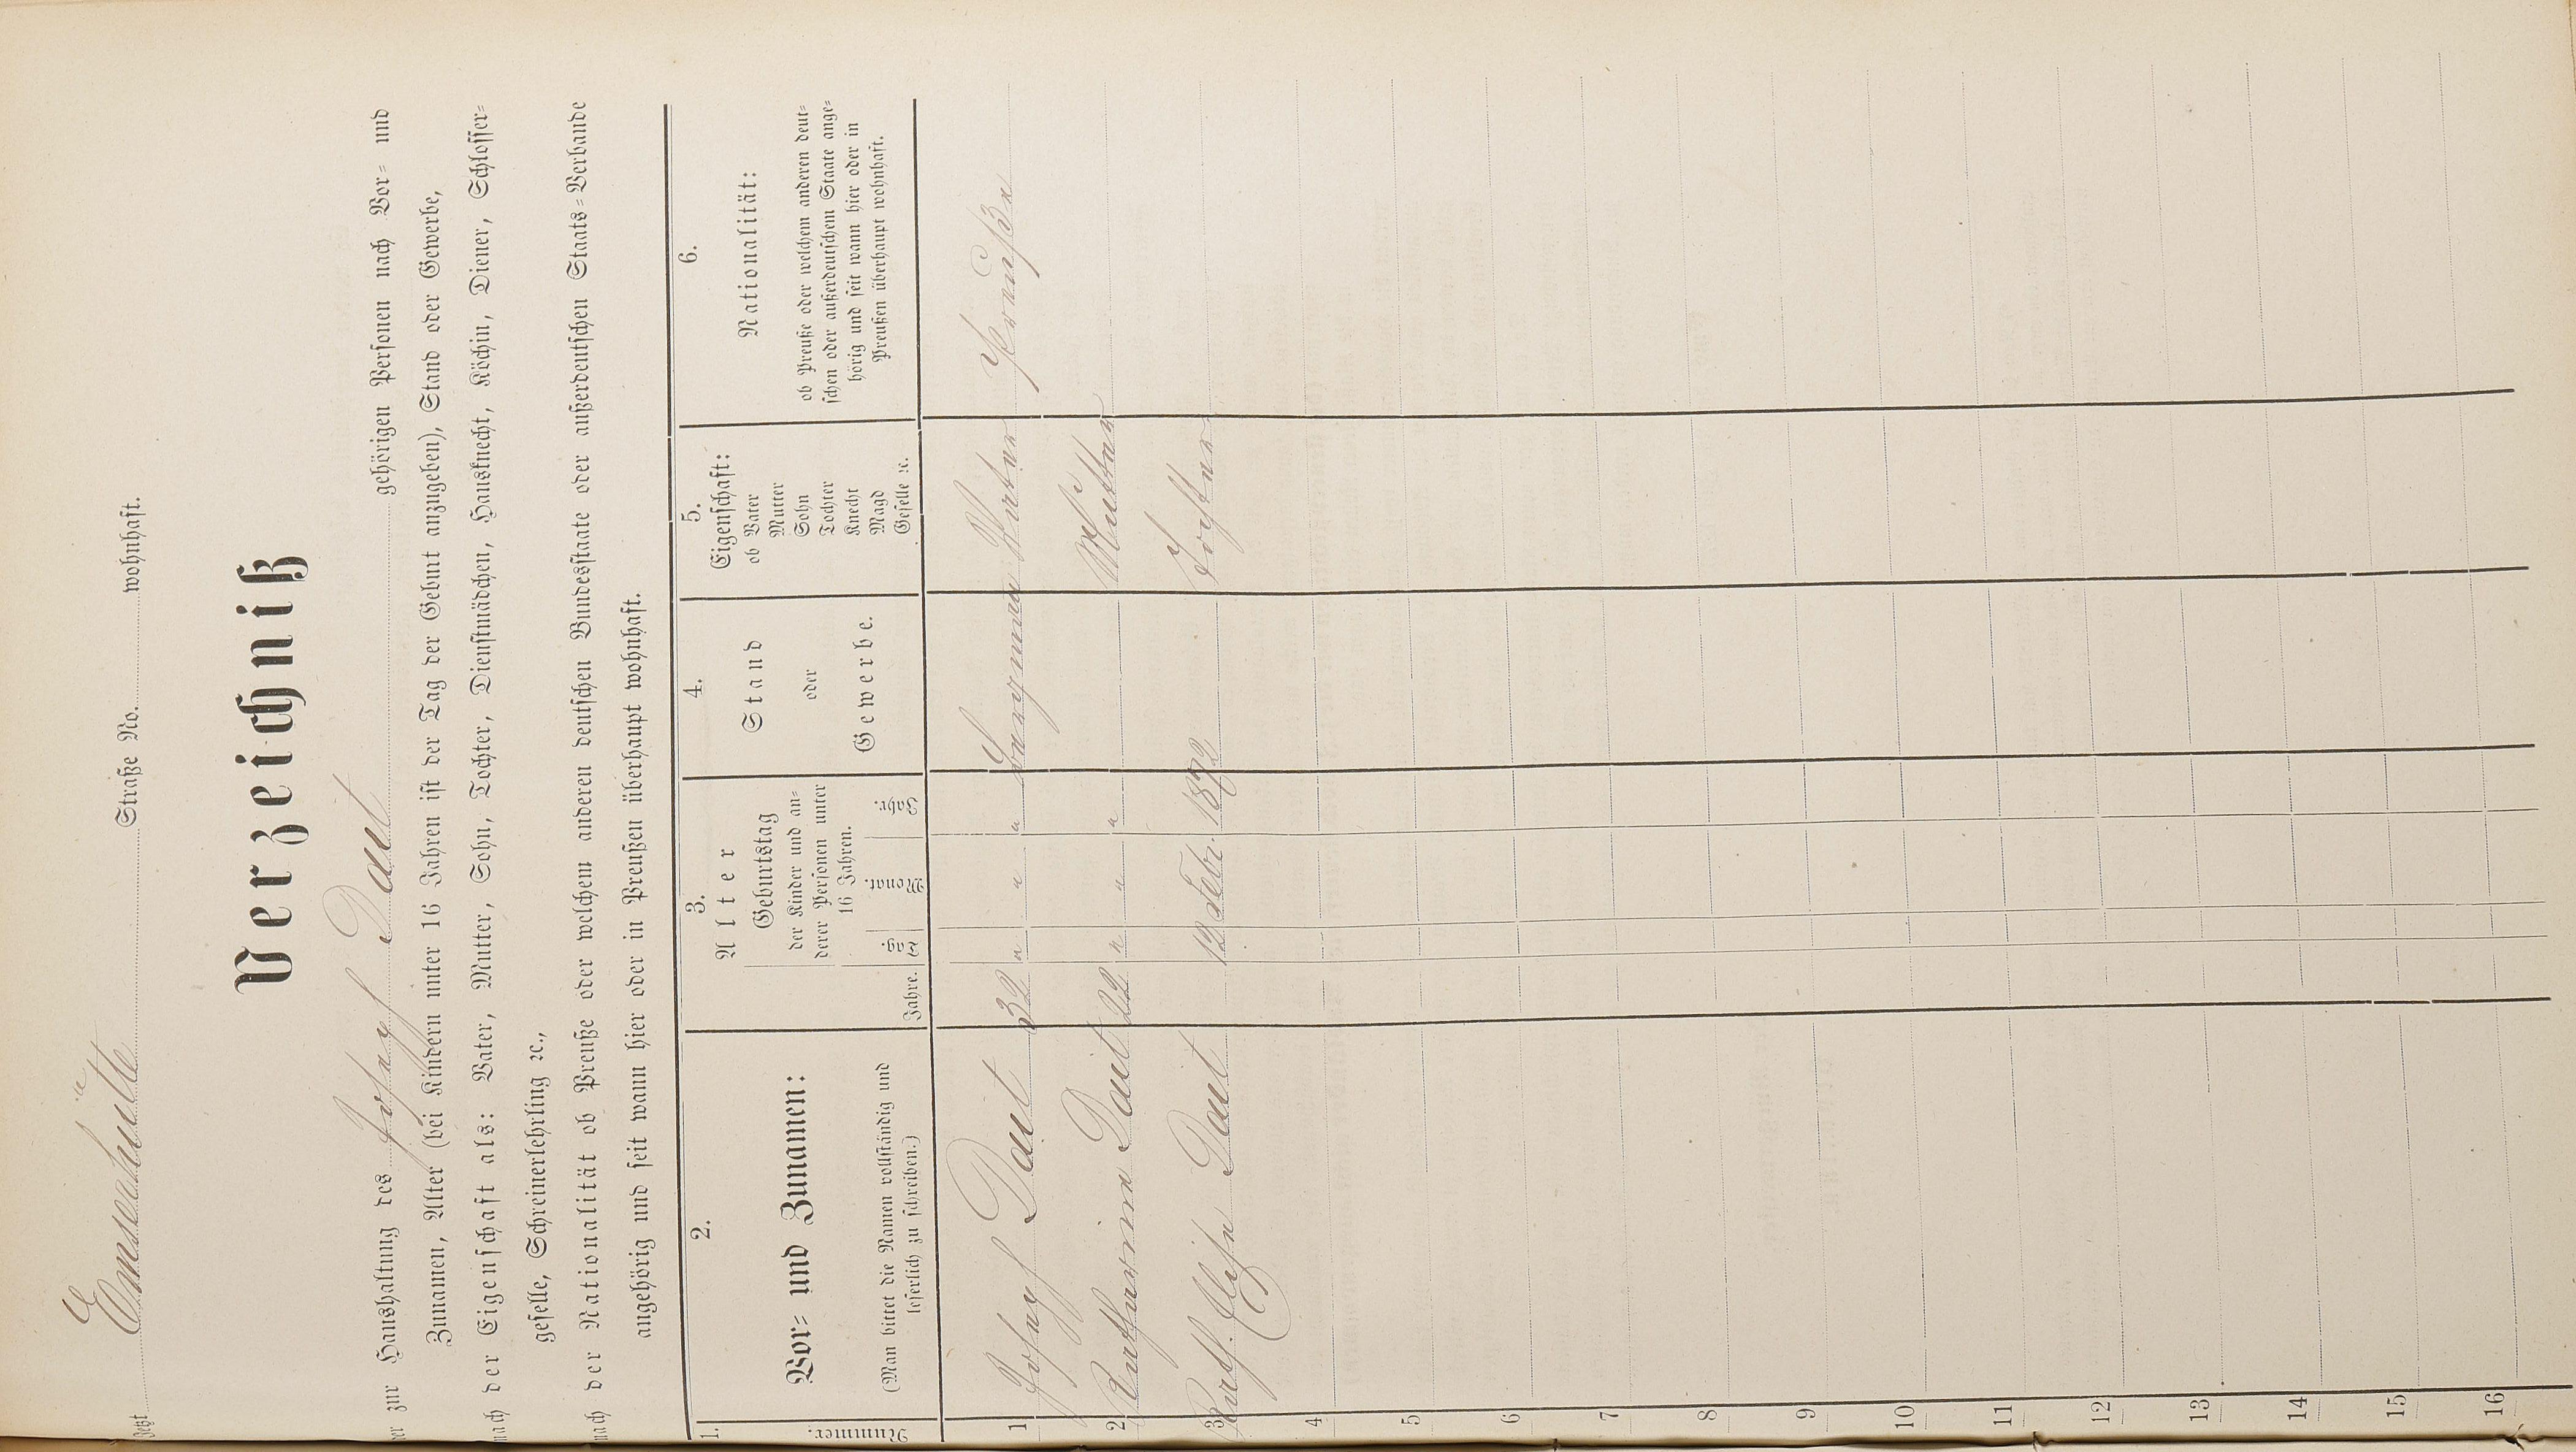 Jetzt Emsehütte Straße No. wohnhaft.
Verzeichniß
der zur Haushaltung des Joseph Daut gehörigen Personen nach Vor= und
Zunamen, Alter (bei Kindern unter 16 Jahren ist der Tag der Geburt anzugeben), Stand oder Gewerbe,
nach der Eigenschaft als: Vater, Mutter, Sohn, Tochter, Dienstmädchen, Hausknecht, Köchin, Diener, Schlosser=
geselle, Schreinerlehrling ꝛc.,
nach der Nationalität ob Preuße oder welchem anderen deutschen Bundesstaate oder außerdeutschen Staats=Verbande
angehörig und seit wann hier oder in Preußen überhaupt wohnhaft.
1. 2. 3. 4. 5. 6.
Nummer.
Vor= und Zunamen:
(Man bittet die Namen vollständig und
leserlich zu schreiben.)
Alter
Jahre.
Geburtstag
der Kinder und an=
derer Personen unter
16 Jahren.
Tag. Monat. Jahr.
Stand
oder
Gewerbe.
Eigenschaft:
ob Vater
Mutter
Sohn
Tochter
Knecht
Magd
Geselle ꝛc.
Nationalität:
ob Preuße oder welchem anderen deut=
schen oder außerdeutschem Staate ange=
hörig und seit wann hier oder in
Preußen überhaupt wohnhaft.
1 Joseph Daut 32 " " " Bergmann Vater Preuße
2 Katharina Daut 22 " " " Mutter
3 Kath. Elise Daut 12 Febr. 1872 Tochter
4
5
6
7
8
9
10
11
12
13
14
15
16